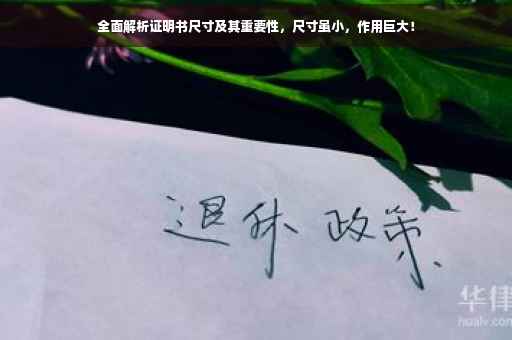 全面解析证明书尺寸及其重要性，尺寸虽小，作用巨大！
退休 政策
华律
hualv.com